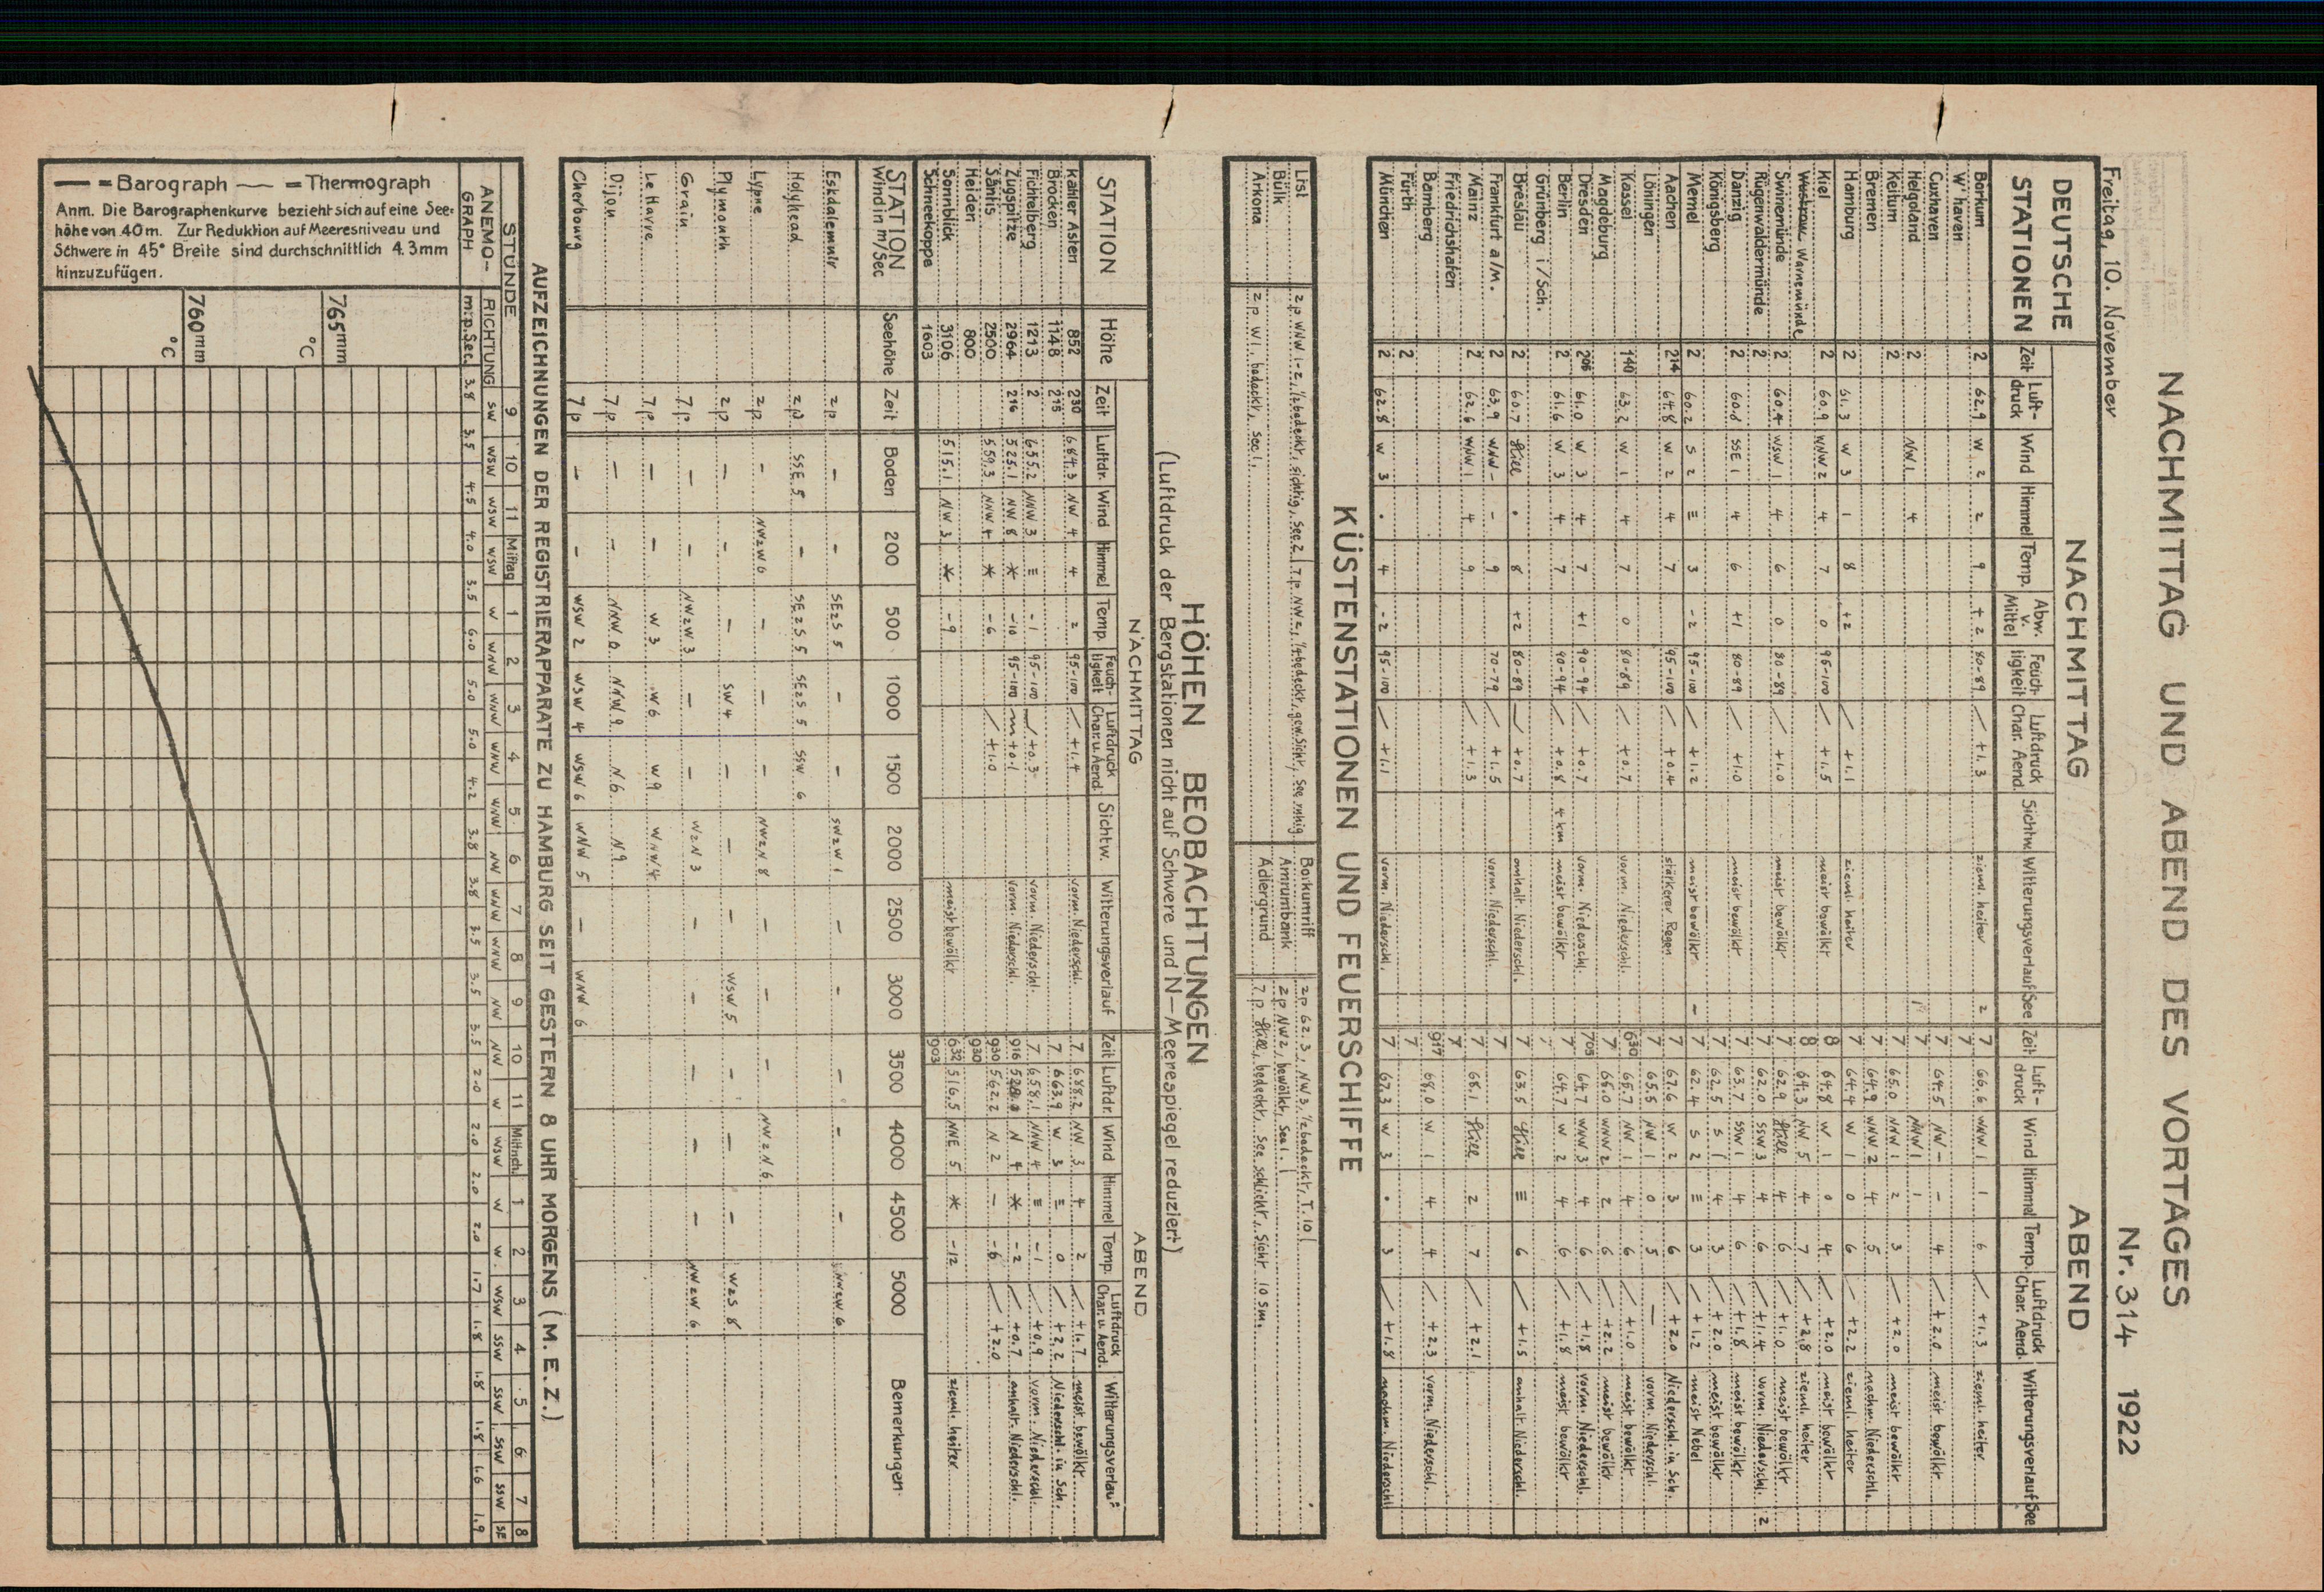 NACHMITTAG UND ABEND DES VORTAGES
Freitag, 10. November Nr. 314 1922
DEUTSCHE STATIONEN NACHMITTAG ABEND
Zeit Luft-druck Wind Himmel Temp. Abw. v. Mittel Feuch-tigkeit Luftdruck Char. Aend. Sichtw. Witterungsverlauf See Zeit Luft-druck Wind Himmel Temp. Luftdruck Char. Aend. Witterungsverlauf See
Borkum 2 62.9 W 2 2 9 +2 80-89 / +1.3 zieml. heiter 2 7 66.6 WNW 1 1 6 / +1.3 zieml. heiter
W'haven 7
Cuxhaven 7 64.5 NW - - 4 / +2.0 meist bewölkt
Helgoland 2 NW 1 4 1 7 NNW 1 1
Keitum 2 7 65.0 NNW 1 2 3 / +2.0 meist bewölkt
Bremen 7 64.9 WNW 2 4 5 nachm. Niederschl.
Hamburg 2 61.3 W 3 1 8 +2 / +1.1 zieml. heiter 7 64.4 W 1 0 6 / +2.2 zieml. heiter
Kiel 2 60.9 WNW 2 4 7 0 95-100 / +1.5 meist bewölkt 8 64.8 W 1 0 4 / +2.0 meist bewölkt
Wustrow Warnemünde 8 64.3 NW 5 4 7 / +2.8 zieml. heiter
Swinemünde 2 60.4 WSW 1 4 6 0 80-89 / +1.0 meist bewölkt 7 62.9 still 4 6 / +1.0 meist bewölkt
Rügenwaldermünde 2 7 62.0 SSW 3 4 6 / +1.4 vorm. Niederschl. 2
Danzig 2 60.8 SSE 1 4 6 +1 80-89 / +1.0 meist bewölkt 7 63.7 SSW 1 4 6 / +1.8 meist bewölkt
Köngsberg 7 62.5 S 1 4 3 / +2.0 meist bewölkt
Memel 2 60.2 S 2 ≡ 3 -2 95-100 / +1.2 meist bewölkt - 7 62.4 S 2 ≡ 3 / +1.2 meist Nebel
Aachen 214 64.8 W 2 4 7 95-100 / +0.4 stärkerer Regen 7 67.6 W 2 3 6 / +2.0 Niederschl. in Sch.
Löningen 7 65.5 NW 1 0 5 — vorm. Niederschl.
Kassel 140 63.2 W 1 4 7 0 80-89 / +0.7 vorm. Niederschl. 630 65.7 NW 1 4 6 / +1.0 meist bewölkt
Magdeburg 7 65.0 WNW 2 2 6 / +2.2 meist bewölkt
Dresden 206 61.0 W 3 4 7 +1 90-94 / +0.7 vorm. Niederschl. 705 64.7 WNW 3 4 6 / +1.8 vorm. Niederschl.
Berlin 2 61.6 W 3 4 7 90-94 / +0.8 4 km meist bewölkt 7 64.7 W 2 4 6 / +1.8 meist bewölkt
Grünberg i/Sch.
Breslau 2 60.7 still • 8 +2 80-89 / +0.7 anhalt. Niederschl. 7 63.5 still ≡ 6 / +1.5 anhalt. Niederschl.
Frankfurt a/M. 2 63.9 WNW - - 9 70-79 / +1.5 vorm. Niederschl. 7
Mainz 2 62.6 WNW 1 4 9 / +1.3 7 68.1 still 2 7 / +2.1
Friedrichshafen 7
Bamberg 917 68.0 W 1 4 4 / +2.3 vorm. Niederschl.
Fürth 2 7
München 2 62.8 W 3 • 4 -2 95-100 / +1.1 vorm. Niederschl. 7 67.3 W 3 • 3 / +1.8 nachm. Niederschl.
KÜSTENSTATIONEN UND FEUERSCHIFFE
List 2p WNW 1-2, ½ bedeckt, sichtig, See 2 | 7p NW 2, ¼ bedeckt, gew. Sicht, See ruhig.
Bülk
Arkona 2p W 1, bedeckt, See 1.
Borkumriff 2p 62.3, NW 3, ½ bedeckt, T. 10
Amrumbank 2p NW 2, bewölkt, See 1.
Adlergrund 7p still, bedeckt, See schlicht, Sicht 10 sm.
HÖHEN BEOBACHTUNGEN
(Luftdruck der Bergstationen nicht auf Schwere und N—Meeresspiegel reduziert)
STATION Höhe NACHMITTAG ABEND
Zeit Luftdr. Wind Himmel Temp. Feuch-tigkeit Luftdruck Char. u. Aend. Sichtw. Witterungsverlauf Zeit Luftdr. Wind Himmel Temp. Luftdruck Char. u. Aend. Witterungsverlauf
Kahler Asten 852 230 684.3 NW 4 4 2 95-100 / +1.4 vorm. Niederschl. 7 688.2 NW 3 4 2 / +1.7 meist bewölkt
Brocken 1148 215 7 663.9 W 3 ≡ 0 / +2.2 Niederschl. in Sch.
Fichtelberg 1213 2 655.2 NNW 3 ≡ -1 95-100 / +0.3 vorm. Niederschl. 7 658.1 NNW 4 ≡ -1 / +0.9 vorm. Niederschl.
Zugspitze 2964 216 525.1 NW 8 * -10 95-100 +0.1 vorm. Niederschl. 916 N 4 * -2 / +0.7 anhalt. Niederschl.
Säntis 2500 559.3 NNW 4 * -6 / +1.0 930 562.2 N 2 - -6 / +2.0
Heiden 800 930
Sonnblick 3106 515.1 NW 3 * -9 meist bewölkt 632 516.5 NNE 5 * -12 zieml. heiter
Schneekoppe 1603 903
STATION Wind in m/Sec Seehöhe Zeit Boden 200 500 1000 1500 2000 2500 3000 3500 4000 4500 5000 Bemerkungen
Eskdalemuir 2p - - SEzS 5 - - SWzW 1 - - - - - NWzW 6
Holyhead 2p SSE 5 - SEzS 5 SEzS 5 SSW 6
Lypne 2p - NWzW 6 - - - NWzN 8 - - - NWzN 6
Plymouth 2p - - - SW 4 - - - WSW 5 - - - WzS 8
Grain 7p - - NWzW 3 - - WzN 3 - - - - - NWzW 6
Le Havre 7p - - W 3 W 6 W 9 WNW 4
Dijon 7p - - NNW 0 NNW 9 N 6 N 9
Cherbourg 7p - - WSW 2 WSW 4 WSW 6 WNW 5 - WNW 6
AUFZEICHNUNGEN DER REGISTRIERAPPARATE ZU HAMBURG SEIT GESTERN 8 UHR MORGENS (M.E.Z.)
STUNDE 9 10 11 Mittag 1 2 3 4 5 6 7 8 9 10 11 Mittnch. 1 2 3 4 5 6 7 8
ANEMO-GRAPH RICHTUNG SW WSW WSW WSW W WNW WNW WNW WNW NW WNW WNW NW NW W WSW W W WSW SSW SSW SSW SSW SE
m.p.Sec. 3.8 3.5 4.5 4.0 3.5 6.0 5.0 5.0 4.2 3.8 3.8 3.5 3.5 3.5 2.0 2.0 2.0 2.0 1.7 1.8 1.8 1.8 1.6 1.9
= Barograph = Thermograph
Anm. Die Barographenkurve bezieht sich auf eine See-
höhe von 40 m. Zur Reduktion auf Meeresniveau und
Schwere in 45° Breite sind durchschnittlich 4.3 mm
hinzuzufügen.
765mm
°C
760mm
°C